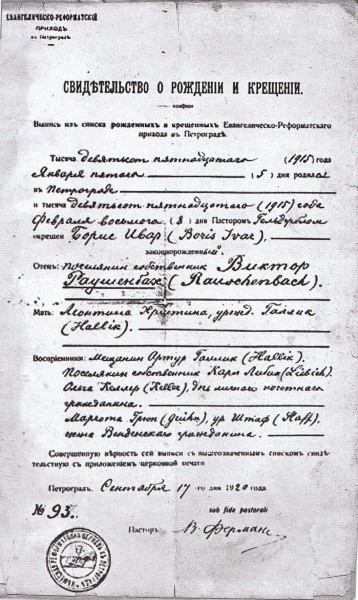 ЕВАНГЕЛИЧЕСКО-РЕФОРМАТСКІЙ
ПРИХОДЪ
въ Петроградѣ
СВИДѢТЕЛЬСТВО О РОЖДЕНІИ И КРЕЩЕНІИ.
Выпись изъ списка рожденныхъ и крещенныхъ Евангелическо-Реформатскаго
прихода въ Петроградѣ.
Тысяча девятьсот пятнадцатаго (1915) года
Января пятого (5) дня родился
въ Петрограде
и тысяча девятьсот пятнадцатаго (1915) года
Февраля восьмого (8) дня Пасторомъ
крещен Борис Ивар (Boris Ivar),
законнорожденный
Отецъ: поселянин собственник Виктор
Раушенбах (Rauschenbach).
Мать: Леонтина Кристина, урожд. Галлик
(Hallik).
Воспріемники: Мещанин Артур Галлик (Hallik).
Поселянин собственник Карл Либих (Liebich).
Ольга Келлер (Keller), дочь личного почетного
гражданина.
Маргота Грюн, ур. Штаф (Staff),
жена Венденского гражданина.
Совершенную вѣрность сей выписи съ вышеозначеннымъ спискомъ свидѣ-
тельствую съ приложеніемъ церковной печати
Петроградъ, Сентября 17-го дня 1920 года
№ 93.
sub fide pastorali
Пасторъ